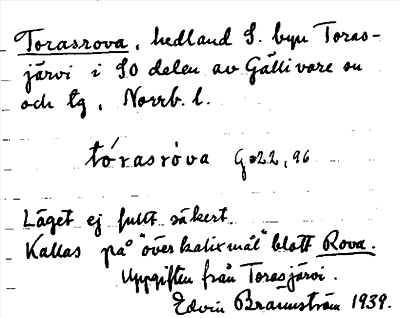 Torasrova, hedland S. byn Toras-
järvi i SO delen av Gällivare sn
och tg, Norrb. l.
tórasròva G 22, 96
Läget ej fullt säkert.
Kallas på "överkalixmål" blott Rova.
Uppgiften från Torasjärvi.
Edvin Brännström 1939.